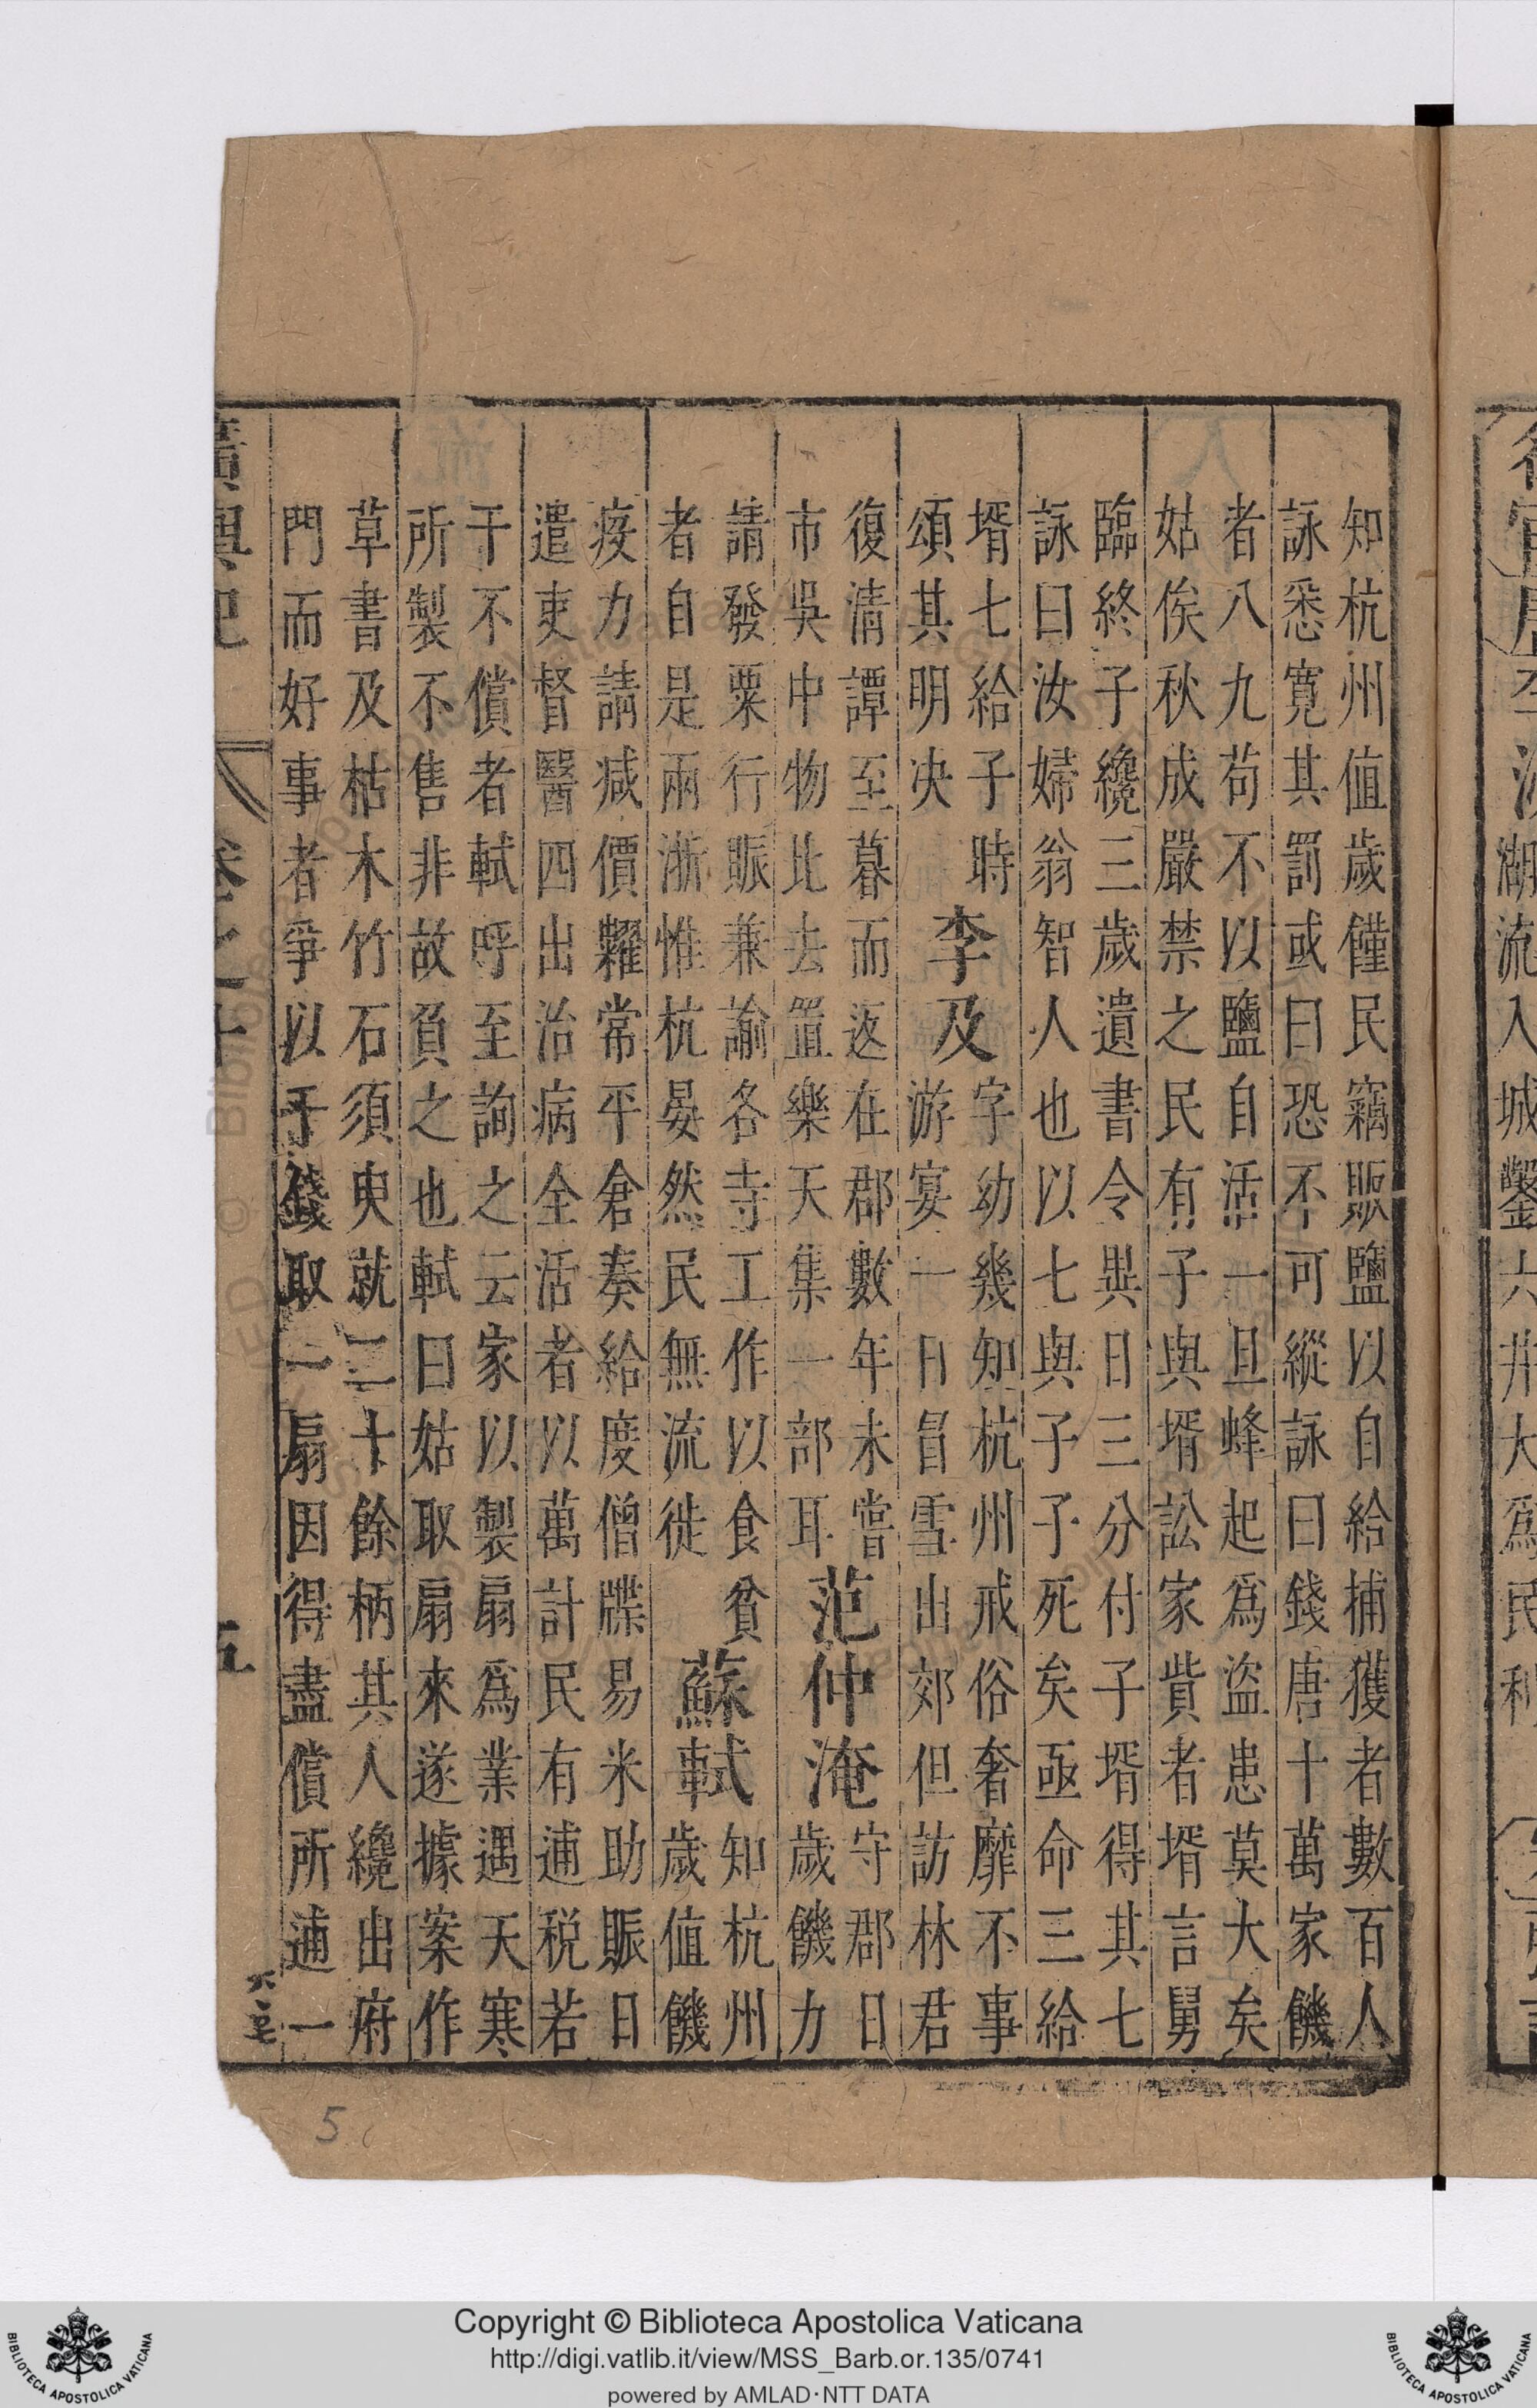 知杭州值歲饉民竊販鹽以自給捕獲者數百人
詠悉寬其罰或曰恐不可縱詠曰錢唐十萬家饑
者八九苟不以鹽自活一旦蜂起爲盜患莫大矣
姑俟秋成嚴禁之民有子與壻訟家貲者壻言舅
臨終子纔三歲遺書令與日三分付子壻得其七
詠曰汝婦翁智人也以七與子子死矣亟命三給
壻七給子時
頌其明決
李及
字幼幾知杭州戒俗奢靡不事
游宴一日冒雪出郊但訪林君
復清譚至暮而返在郡數年未嘗
市吳中物比去置樂天集一部耳
范仲淹
守郡日
歲饑力
請發粟行賑兼諭各寺工作以食貧
者自是兩浙惟杭晏然民無流徙
蘇軾
知杭州
歲值饑
疫力請減價糶常平倉奏給度僧牒易米助賑日
遣吏督醫四出治病全活者以萬計民有逋税若
干不償者軾呼至詢之云家以製扇爲業遇天寒
所製不售非故負之也軾曰姑取扇來遂據案作
草書及枯木竹石須臾就二十餘柄其人纔出府
門而好事者爭以千錢取一扇因得盡償所逋一
廣輿記
卷之十
五
5
湖流入城鑿六井大爲民利
Copyright © Biblioteca Apostolica Vaticana
http://digi.vatlib.it/view/MSS_Barb.or.135/0741
powered by AMLAD·NTT DATA
BIBLIOTECA APOSTOLICA VATICANA
BIBLIOTECA APOSTOLICA VATICANA